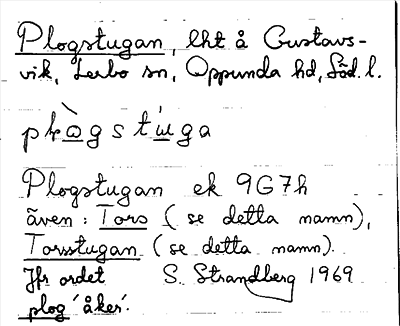 Plogstugan, lht å Gustavs-
vik, Lerbo sn, Oppunda hd, Söd. l.
plògstúga
Plogstugan ek 9G7h
även: Tors (se detta namn),
Torsstugan (se detta namn).
Jfr ordet S. Strandberg 1969
plog 'åker'.